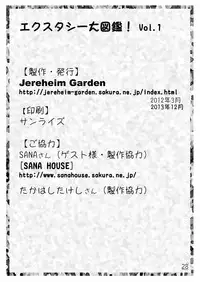 エクスタシー大図鑑! Vol.1
【製作・発行】
Jereheim Garden
http://jereheim-garden.sakura.ne.jp/index.html
2012年3月
2013年12月
【印刷】
サンライズ
【ご協力】
SANAさん(ゲスト様・製作協力)
[SANA HOUSE]
http://www.sanahouse.sakura.ne.jp/
たかはしたけしさん(製作協力)
23